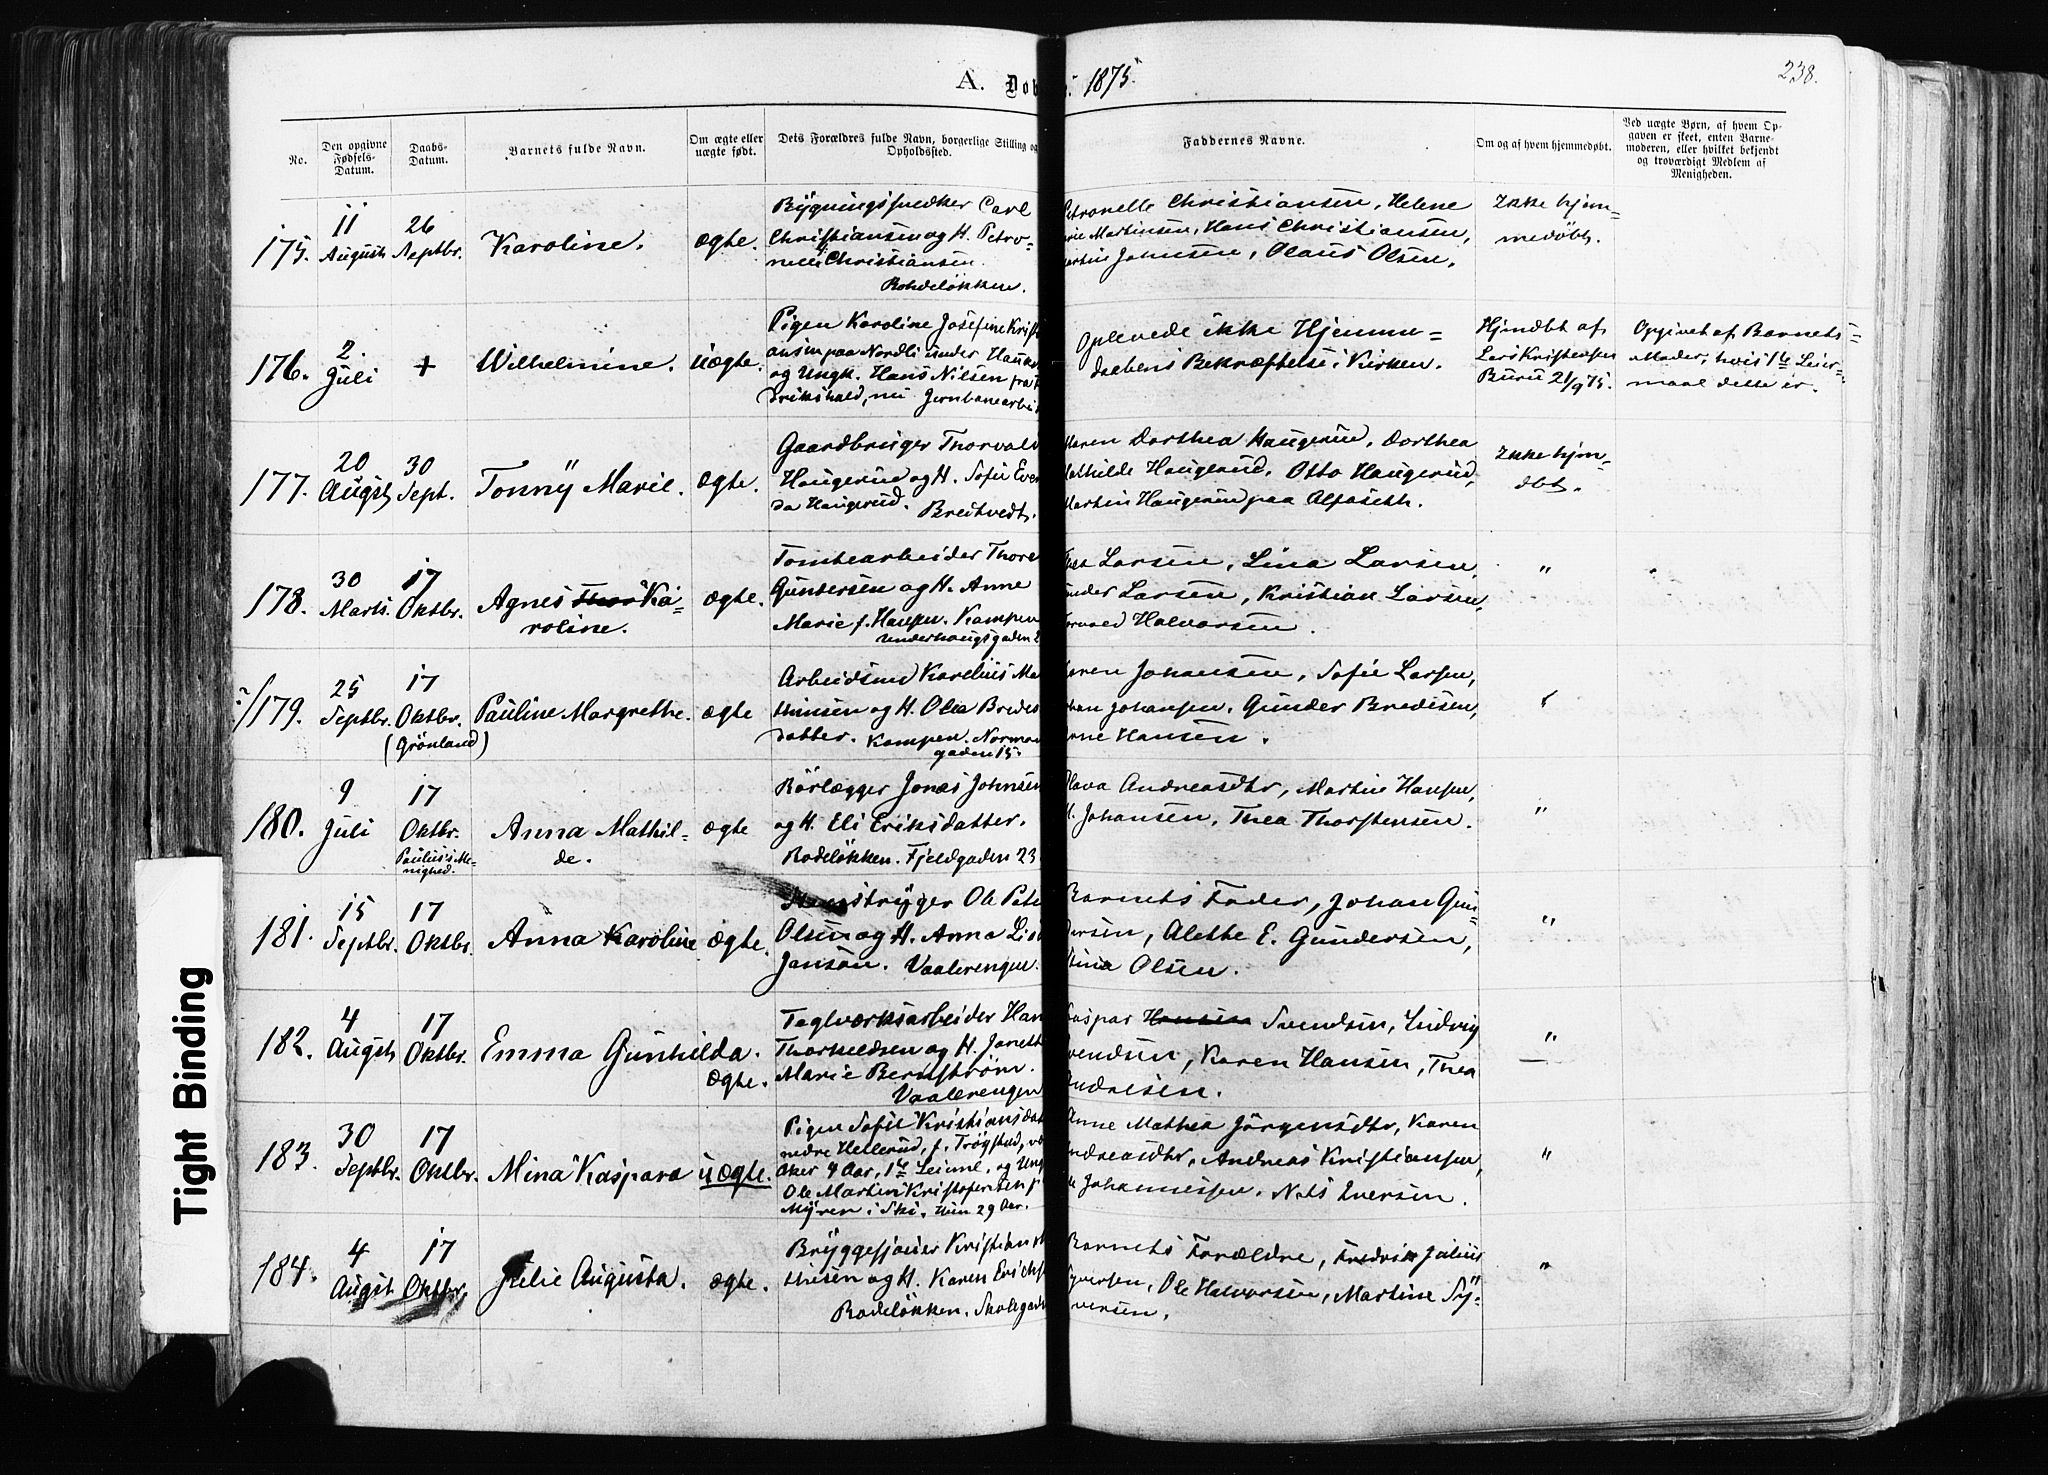 A. Dob 1875.
238.
No.
Den opgivne Fødsels-Datum.
Daabs-Datum.
Barnets fulde Navn.
Om ægte eller uægte født.
Dets Forældres fulde Navn, borgerlige Stilling og Opholdssted.
Faddernes Navne.
Om og af hvem hjemmedøbt.
Ved uægte Børn, af hvem Opgaven er skeet, enten Barnemoderen, eller hvilket bekjendt og troværdigt Medlem af Menigheden.
175. 11 August 26 Septbr. Karoline. ægte.
Bygningssnedker Carl
Christiansen og H. Petro=
nelle Christiansen.
Rodeløkken.
Petronelle Christiansen, Helene
Martinsen, Hans Christiansen,
Johnsen, Olaus Olsen.
Ikke hjem=
medøbt.
176. 2 Juli + Wilhelmine. uægte.
Pigen Karoline Josefine
paa Nordli under
og Ungk. Hans Nilsen fra
nu
Oplevede ikke Hjemme=
daabens Bekræftelse i Kirken.
Hjmdbt af
Lars Kristensen
21/9 75.
Opgivet af Barnets
Moder, hvis 1ste Leier=
maal dette er.
177. 20 Augst 30 Sept. Tonny Marie. ægte.
Gaardbruger Thorvald
Haugerud og H. Sofie
Haugerud. Bredtvedt.
Maren Dorthea Haugerud, Dorthea
Mathilde Haugerud, Otto Haugerud,
Martin Haugerud paa Alfaseth.
Ikke hjm=
dbt.
178. 30 Marts 17 Oktbr. Agnes Ka=
roline. ægte.
Tomtearbeider Thore
Gundersen og H. Anne
Marie f. Hansen. Kampen
Larsen, Lina Larsen,
Larsen, Kristian Larsen,
Halvorsen.
"
179. 25 Septbr. 17 Oktbr. (Grønland) Pauline Margrethe. ægte
Arbeidsmd Karelius
og H. Olea
datter. Kampen. Norman
gaden 15.
Johansen, Sofie Larsen,
Johansen, Gunder Bredesen,
Hansen.
"
180. 9 Juli 17 Oktbr. Paulus's Me-
nighed. Anna Mathil-
de. ægte
Rørlægger Jonas Johnsen
og H. Eli Eriksdatter.
Rodeløkken. Fjeldgaden 23
Andreasdtr, Martin Hansen,
Johansen, Thea Thorstensen.
"
181. 15 Septbr. 17 Oktbr. Anna Karoline ægte.
Ole
Olsen og H. Anna
Janson. Vaalerengen.
Barnets Fader, Johan Gun=
dersen, Alethe E. Gundersen,
Olsen.
"
182. 4 Augst 17 Oktbr. Emma Gunhilda. ægte.
Teglverksarbeider Han
Thorkeldsen og H.
Marie Bernstrøm.
Vaalerengen
Kaspar Svendsen, Ludvig
Svendsen, Karen Hansen, Thea
Andresen.
"
183. 30 Septbr. 17 Oktbr. Mina Kaspara uægte.
Pigen Sofie
nedre Hellerud, f. Trøgstad,
Aker 4 Aar, 1ste og
Ole Martin Kristofersen
Myren i Ski. Hun 29 Aar.
Anne Mathea Jørgensdtr, Karen
Andreasdtr, Andreas Kristiansen,
Johannessen, Nils Iversen.
"
184. 4 Augst 17 Oktbr. Julie Augusta. ægte.
Bryggesjauer Kristian
og H. Karen
Rodeløkken.
Barnets Forældre, Fredrik Julius
Syversen, Ole Halvorsen, Martine Sy=
versen.
"
Tight Binding